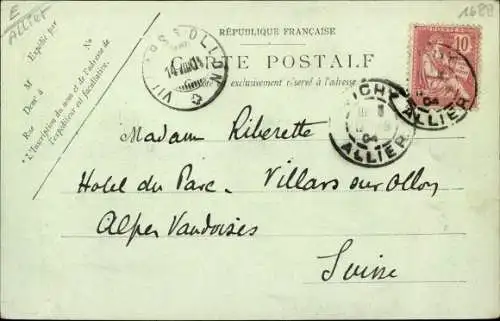 E
Allier
1688
RÉPUBLIQUE FRANÇAISE
CARTE POSTALE
exclusivement réservé à l'adresse
Expédié par
M
Demt à
Rue
No
*L'Inscription du nom et de l'adresse de
l'expéditeur est facultative.
VILLARS S. OLLON
14
10
VICHY
04
ALLIER
04
ALLIER
Madame Riberette
Hotel du Parc - Villars sur Ollon
Alpes Vaudoises
Suisse